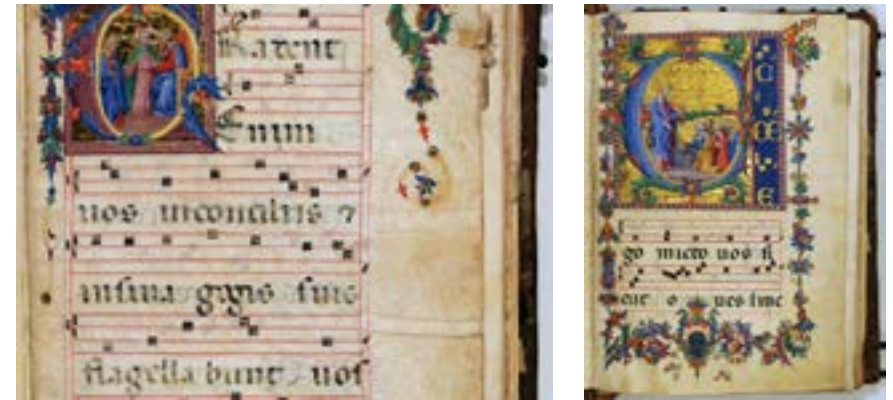 Radent
Enim
uos inconciliis 7
insina gogis suis
flagella bunt uos
go micto uos si
cut o ues